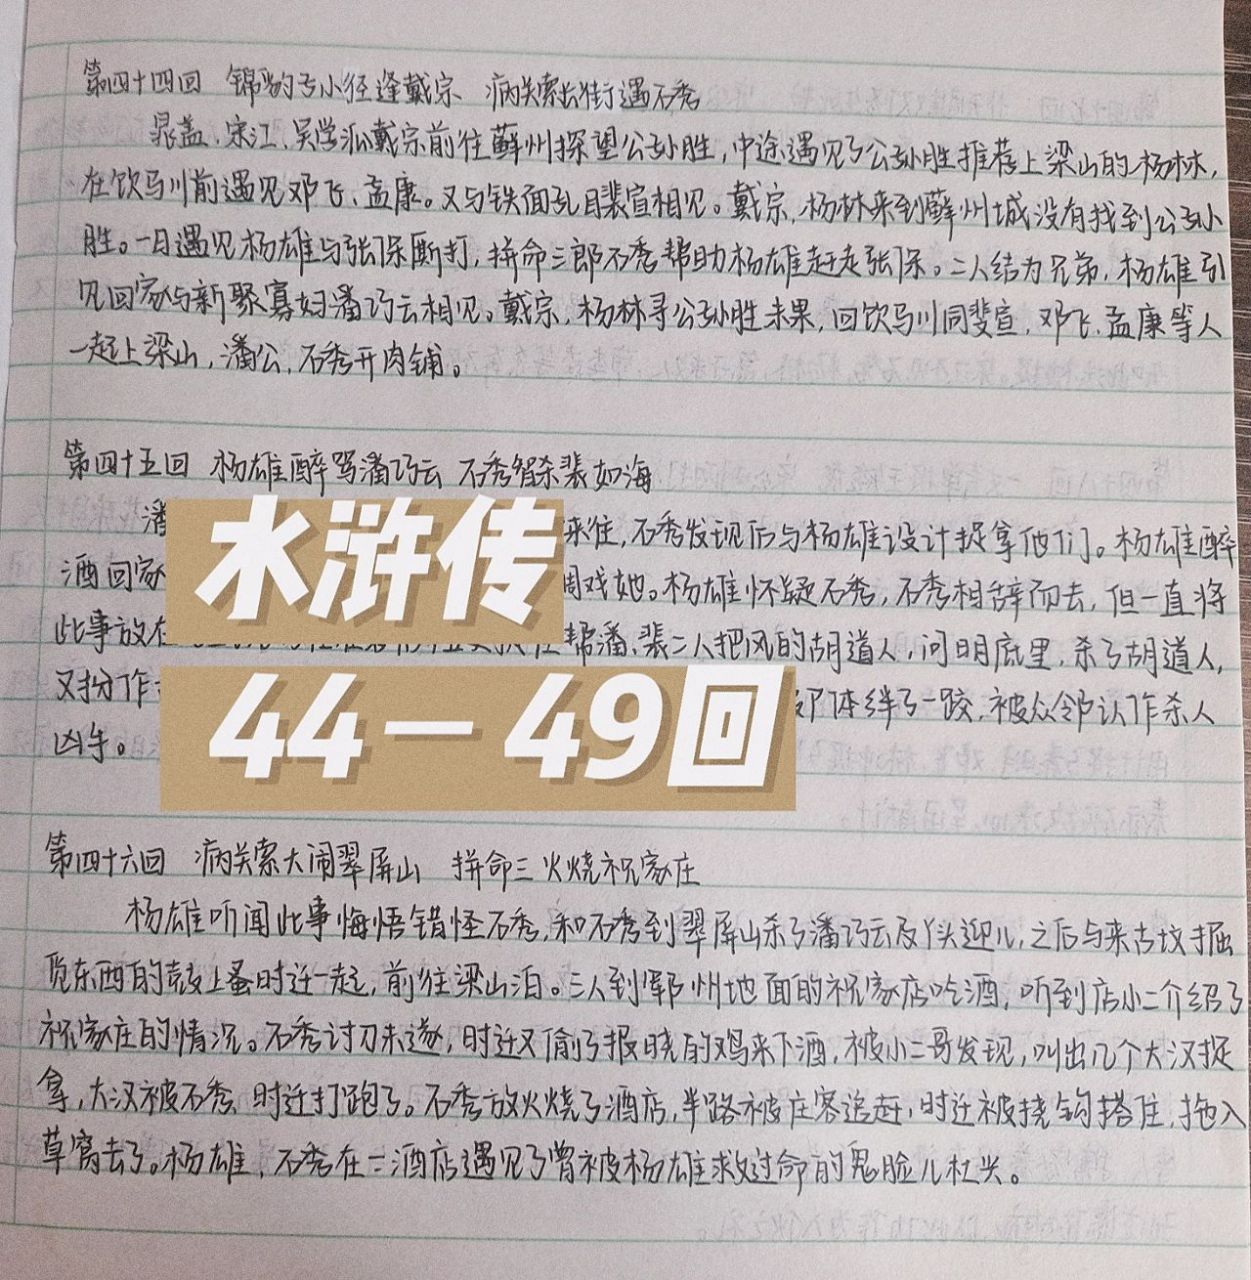 第四十四回 锦豹子小径逢戴宗 病关索长街遇石秀
晁盖、宋江、吴学派戴宗前往蓟州探望公孙胜，中途遇见了公孙胜推荐上梁山的杨林，
在饮马川前遇见邓飞、孟康。又与铁面孔目裴宣相见。戴宗、杨林来到蓟州城没有找到公孙
胜。一日遇见杨雄与张保厮打，拼命三郎石秀帮助杨雄赶走张保。二人结为兄弟，杨雄引
见回家与新聚寡妇潘巧云相见。戴宗，杨林寻公孙胜未果，回饮马川同斐宣，邓飞、孟康等人
一起上梁山，潘公、石秀开肉铺。
第四十五回 杨雄醉骂潘巧云 石秀智杀裴如海
潘 来往，石秀发现后与杨雄设计捉拿他们。杨雄醉
酒回家 调戏她。杨雄怀疑石秀，石秀相辞而去，但一直将
此事放在 帮潘、裴二人把风的胡道人，问明底里，杀了胡道人，
又扮作 体绊了一跤，被众邻认作杀人
凶手。
水浒传
44－49回
第四十六回 病关索大闹翠屏山 拼命三火烧祝家庄
杨雄听闻此事悔悟错怪石秀，和石秀到翠屏山杀了潘巧云及丫头迎儿，之后与来古坟掘
觅东西的鼓上蚤时迁一起，前往梁山泊。三人到郓州地面的祝家店吃酒，听到店小二介绍了
祝家庄的情况。石秀讨刀未遂，时迁又偷了报晓的鸡来下酒，被小二哥发现，叫出几个大汉捉
拿，大汉被石秀、时迁打跑了。石秀放火烧了酒店，半路被庄客追赶，时迁被挠钩搭住，拖入
草窝去了。杨雄、石秀在一酒店遇见了曾被杨雄救过命的鬼脸儿杜兴。